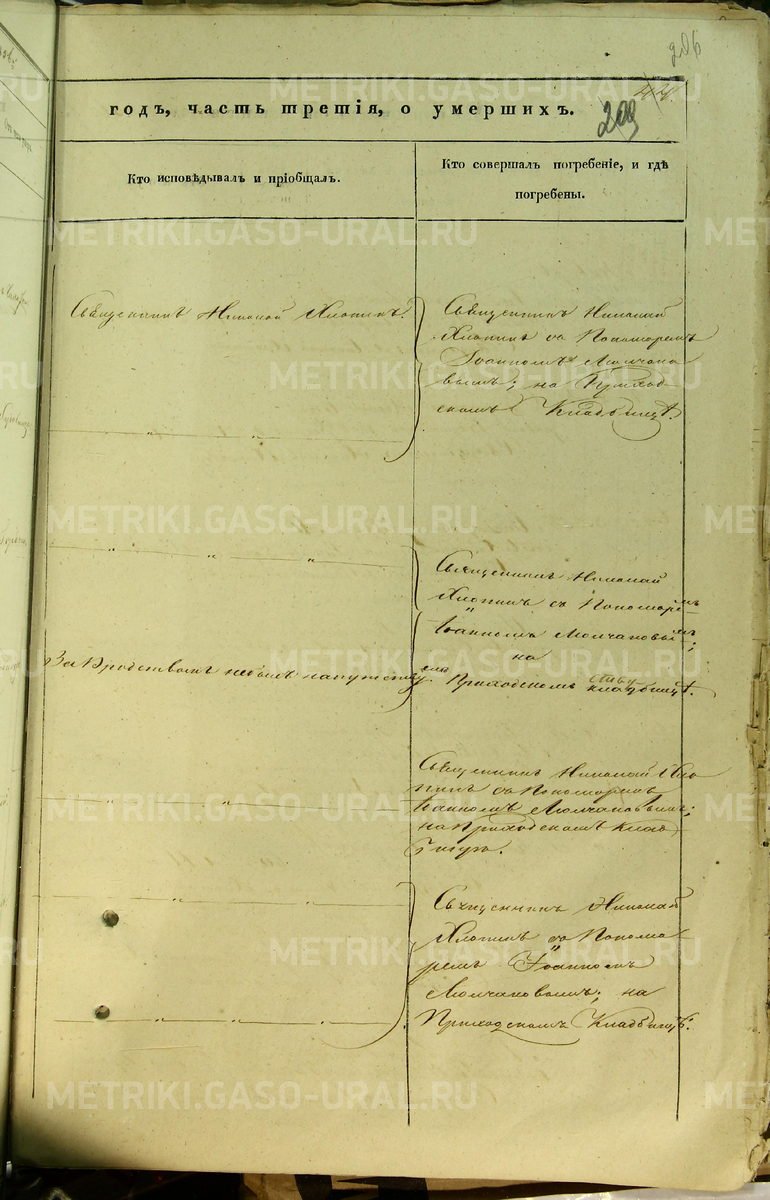 206
44
годъ, часть третія, о умершихъ.
209
Кто исповѣдывалъ и пріобщалъ.
Кто совершалъ погребеніе, и гдѣ
погребены.
Священникъ Николай Хлопинъ.
Священникъ Николай
Хлопинъ съ Пономаремъ
Іоанномъ Молчано
вымъ; на Приход
скомъ Кладбищѣ.
Священникъ Николай
Хлопинъ съ Пономаремъ
Іоанномъ Молчановымъ;
на
Приходскомъ кладбищѣ.
Священникъ Николай Хло
пинъ съ Пономаремъ
Іоанномъ Молчановымъ;
на Приходскомъ клад
бищѣ.
Священникъ Николай
Хлопинъ съ Понома
ремъ Іоанномъ
Молчановымъ; на
Приходскомъ Кладбищѣ.
METRIKI.GASO-URAL.RU